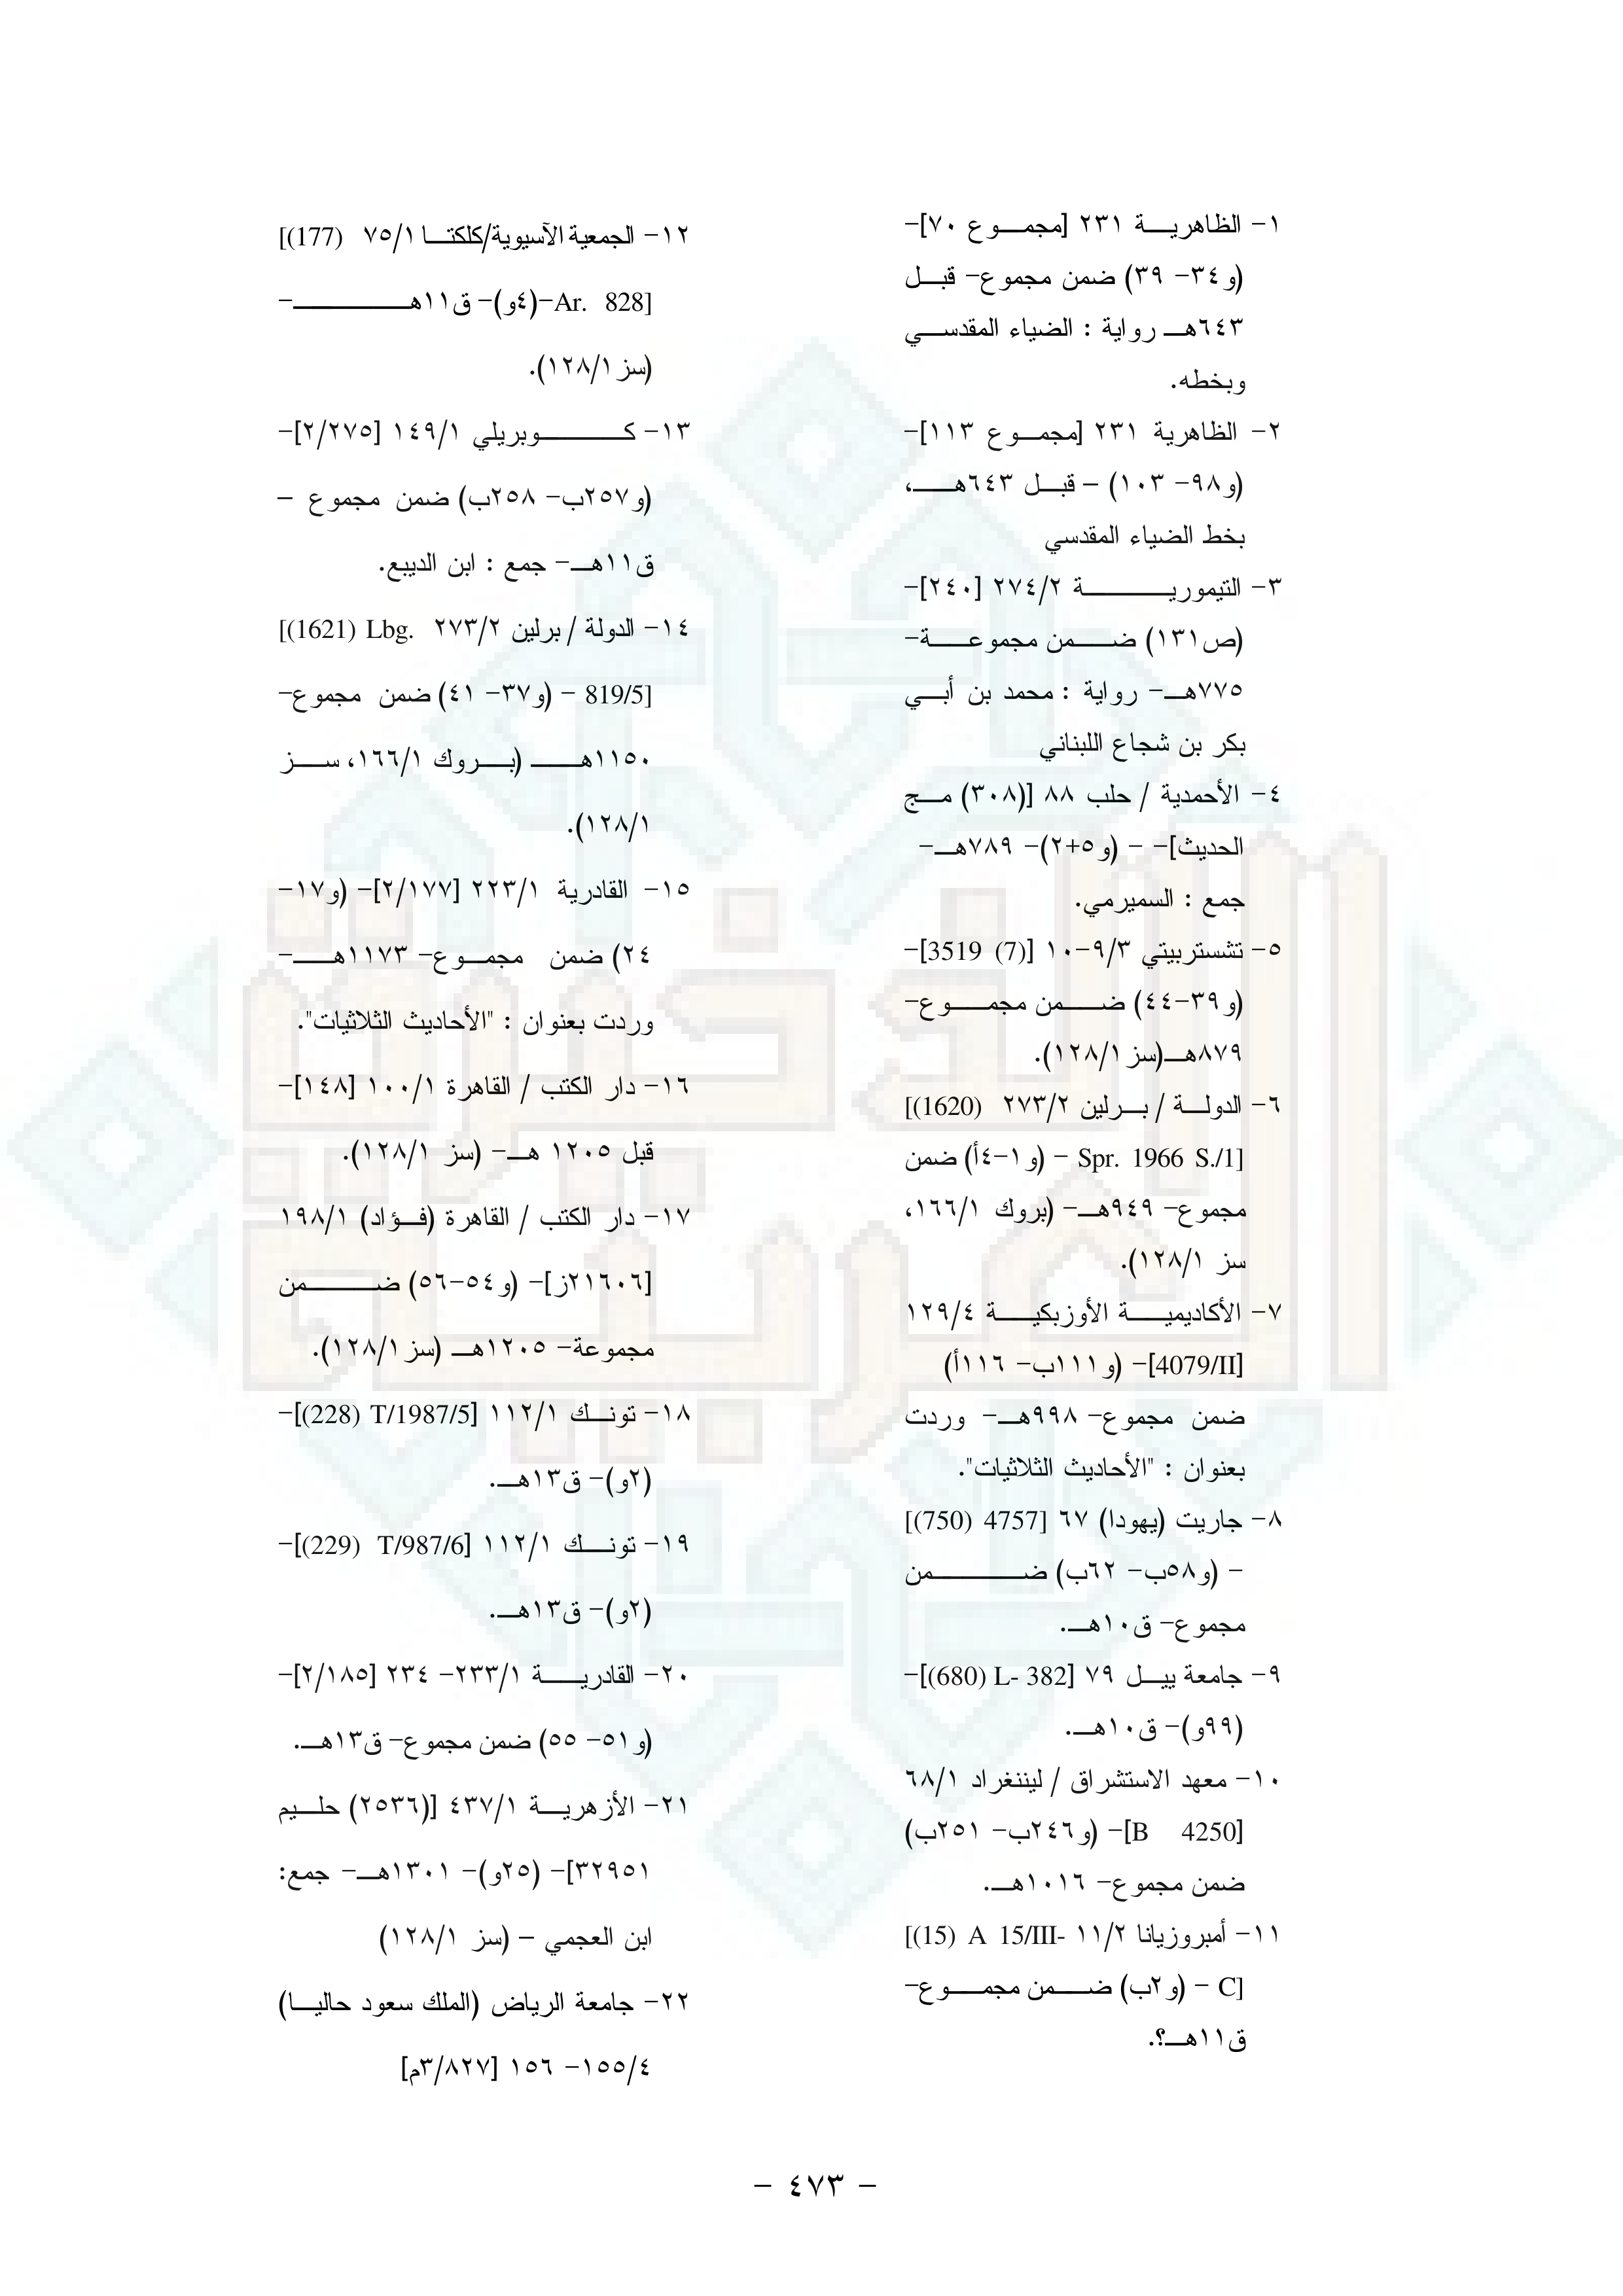 ١- الظاهرية ٢٣١ [مجموع ٧٠]-
(و٣٤- ٣٩) ضمن مجموع- قبل
٦٤٣هـ رواية : الضياء المقدسي
وبخطه.
٢- الظاهرية ٢٣١ [مجموع ١١٣]-
(و٩٨- ١٠٣) – قبل ٦٤٣هـ،
بخط الضياء المقدسي
٣- التيمورية ٢٧٤/٢ [٢٤٠]-
(ص١٣١) ضمن مجموعة-
٧٧٥هـ- رواية : محمد بن أبي
بكر بن شجاع اللبناني
٤- الأحمدية / حلب ٨٨ [(٣٠٨) مج
الحديث]- - (و٥+٢)- ٧٨٩هـ-
جمع : السميرمي.
٥- تشستربيتي ٩/٣-١٠ [3519 (7)]-
(و٣٩-٤٤) ضمن مجموع-
٨٧٩هـ(سز١٢٨/١).
٦- الدولة / برلين ٢٧٣/٢ [(1620)
Spr. 1966 S./1] – (و١-٤أ) ضمن
مجموع- ٩٤٩هـ- (بروك ١٦٦/١،
سز ١٢٨/١).
٧- الأكاديمية الأوزبكية ١٢٩/٤
[4079/II]- (و١١١ب- ١١٦أ)
ضمن مجموع- ٩٩٨هـ- وردت
بعنوان : "الأحاديث الثلاثيات".
٨- جاريت (يهودا) ٦٧ [4757 (750)]
- (و٥٨ب- ٦٢ب) ضمن
مجموع- ق١٠هـ.
٩- جامعة ييل ٧٩ [L- 382 (680)]-
(٩٩و)- ق١٠هـ.
١٠- معهد الاستشراق / ليننغراد ٦٨/١
[B 4250]- (و٢٤٦ب- ٢٥١ب)
ضمن مجموع- ١٠١٦هـ.
١١- أمبروزيانا ١١/٢ [(15) A 15/III-
C] – (و٢ب) ضمن مجموع-
ق١١هـ؟.
١٢- الجمعية الآسيوية/كلكتا ٧٥/١ [(177)
Ar. 828]-(٤و)- ق١١هـ-
(سز١٢٨/١).
١٣- كوبريلي ١٤٩/١ [٢/٢٧٥]-
(و٢٥٧ب- ٢٥٨ب) ضمن مجموع –
ق١١هـ- جمع : ابن الديبع.
١٤- الدولة / برلين ٢٧٣/٢ [(1621) Lbg.
819/5] – (و٣٧- ٤١) ضمن مجموع-
١١٥٠هـ (بروك ١٦٦/١، سز
١٢٨/١).
١٥- القادرية ٢٢٣/١ [٢/١٧٧]- (و١٧-
٢٤) ضمن مجموع- ١١٧٣هـ-
وردت بعنوان : "الأحاديث الثلاثيات".
١٦- دار الكتب / القاهرة ١٠٠/١ [١٤٨]-
قبل ١٢٠٥ هـ- (سز ١٢٨/١).
١٧- دار الكتب / القاهرة (فؤاد) ١٩٨/١
[٢١٦٠٦ز]- (و٥٤-٥٦) ضمن
مجموعة- ١٢٠٥هـ (سز١٢٨/١).
١٨- تونك ١١٢/١ [T/1987/5 (228)]-
(٢و)- ق١٣هـ.
١٩- تونك ١١٢/١ [T/987/6 (229)]-
(٢و)- ق١٣هـ.
٢٠- القادرية ٢٣٣/١- ٢٣٤ [٢/١٨٥]-
(و٥١- ٥٥) ضمن مجموع- ق١٣هـ.
٢١- الأزهرية ٤٣٧/١ [(٢٥٣٦) حليم
٣٢٩٥١]- (٢٥و)- ١٣٠١هـ- جمع:
ابن العجمي – (سز ١٢٨/١)
٢٢- جامعة الرياض (الملك سعود حاليا)
١٥٥/٤- ١٥٦ [٣/٨٢٧م]
- ٤٧٣ -
الذخيرة
العربية